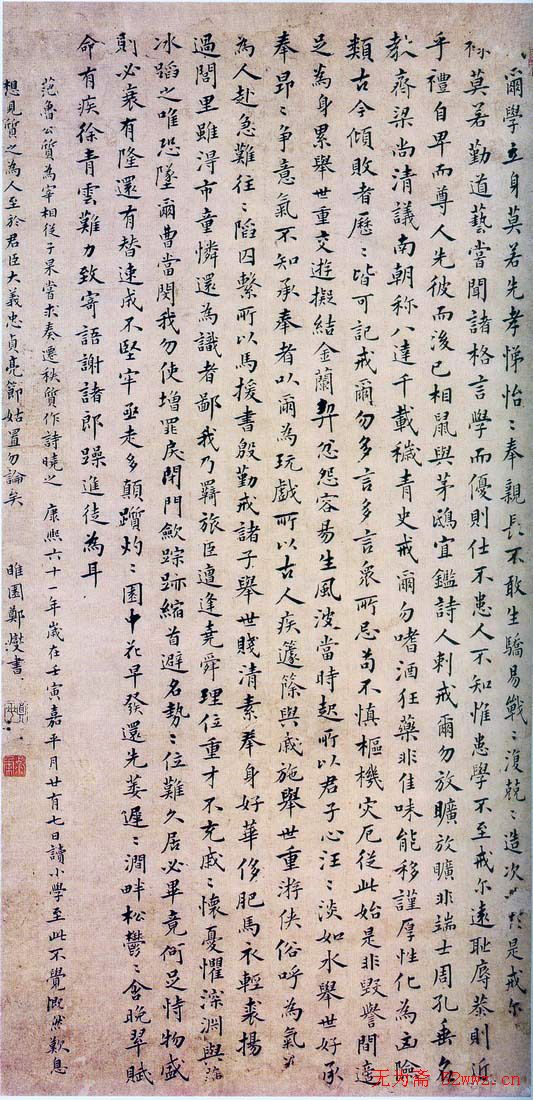 爾學立身莫若先孝悌怡〻奉親長不敢生驕易戰〻復兢〻造次必於是戒尔
祿莫若勤道藝嘗聞諸格言學而優則仕不患人不知惟患學不至戒尔遠恥辱恭則近
乎禮自卑而尊人先彼而後已相鼠與茅鴟宜鑑詩人刺戒爾勿放曠放曠非端士周孔垂名
教齊梁尚清議南朝称八達千載穢青史戒爾勿嗜酒狂藥非佳味能移謹厚性化為凶險
類古今傾敗者歷〻皆可記戒爾勿多言多言衆所忌苟不慎樞機灾厄從此始是非毀譽間適
足為身累舉世重交遊擬結金蘭契忿怨容易生風波當時起所以君子心汪〻淡如水舉世好承
奉昂〻争意氣不知承奉者以爾為玩戲所以古人疾籧篨與戚施舉世重游侠俗呼為氣
為人赴急難往〻陷囚繫所以馬援書殷勤戒諸子舉世賤清素奉身好華侈肥馬衣輕裘揚
過閭里雖得市童憐還為識者鄙我乃羈旅臣遭逢堯舜理位重才不充戚〻懷憂懼深淵與
冰蹈之唯恐墜爾曹當閔我勿使增罪戾閉門歛踪跡縮首避名勢〻位難久居必畢竟何足恃物盛
則必衰有隆還有替速成不堅牢亟走多顛躓灼〻園中花早發還先萎遲〻澗畔松鬱〻含晚翠賦
命有疾徐青雲難力致寄語謝諸郎躁進徒為耳
范魯公質為宰相從子杲嘗求奏遷秩質作詩曉之 康熙六十一年歲在壬寅嘉平月廿有七日讀小學至此不覺慨然歎息
想見質之為人至於君臣大義忠貞亮節姑置勿論矣 雎園鄭燮書
无为斋 22wwz.cn